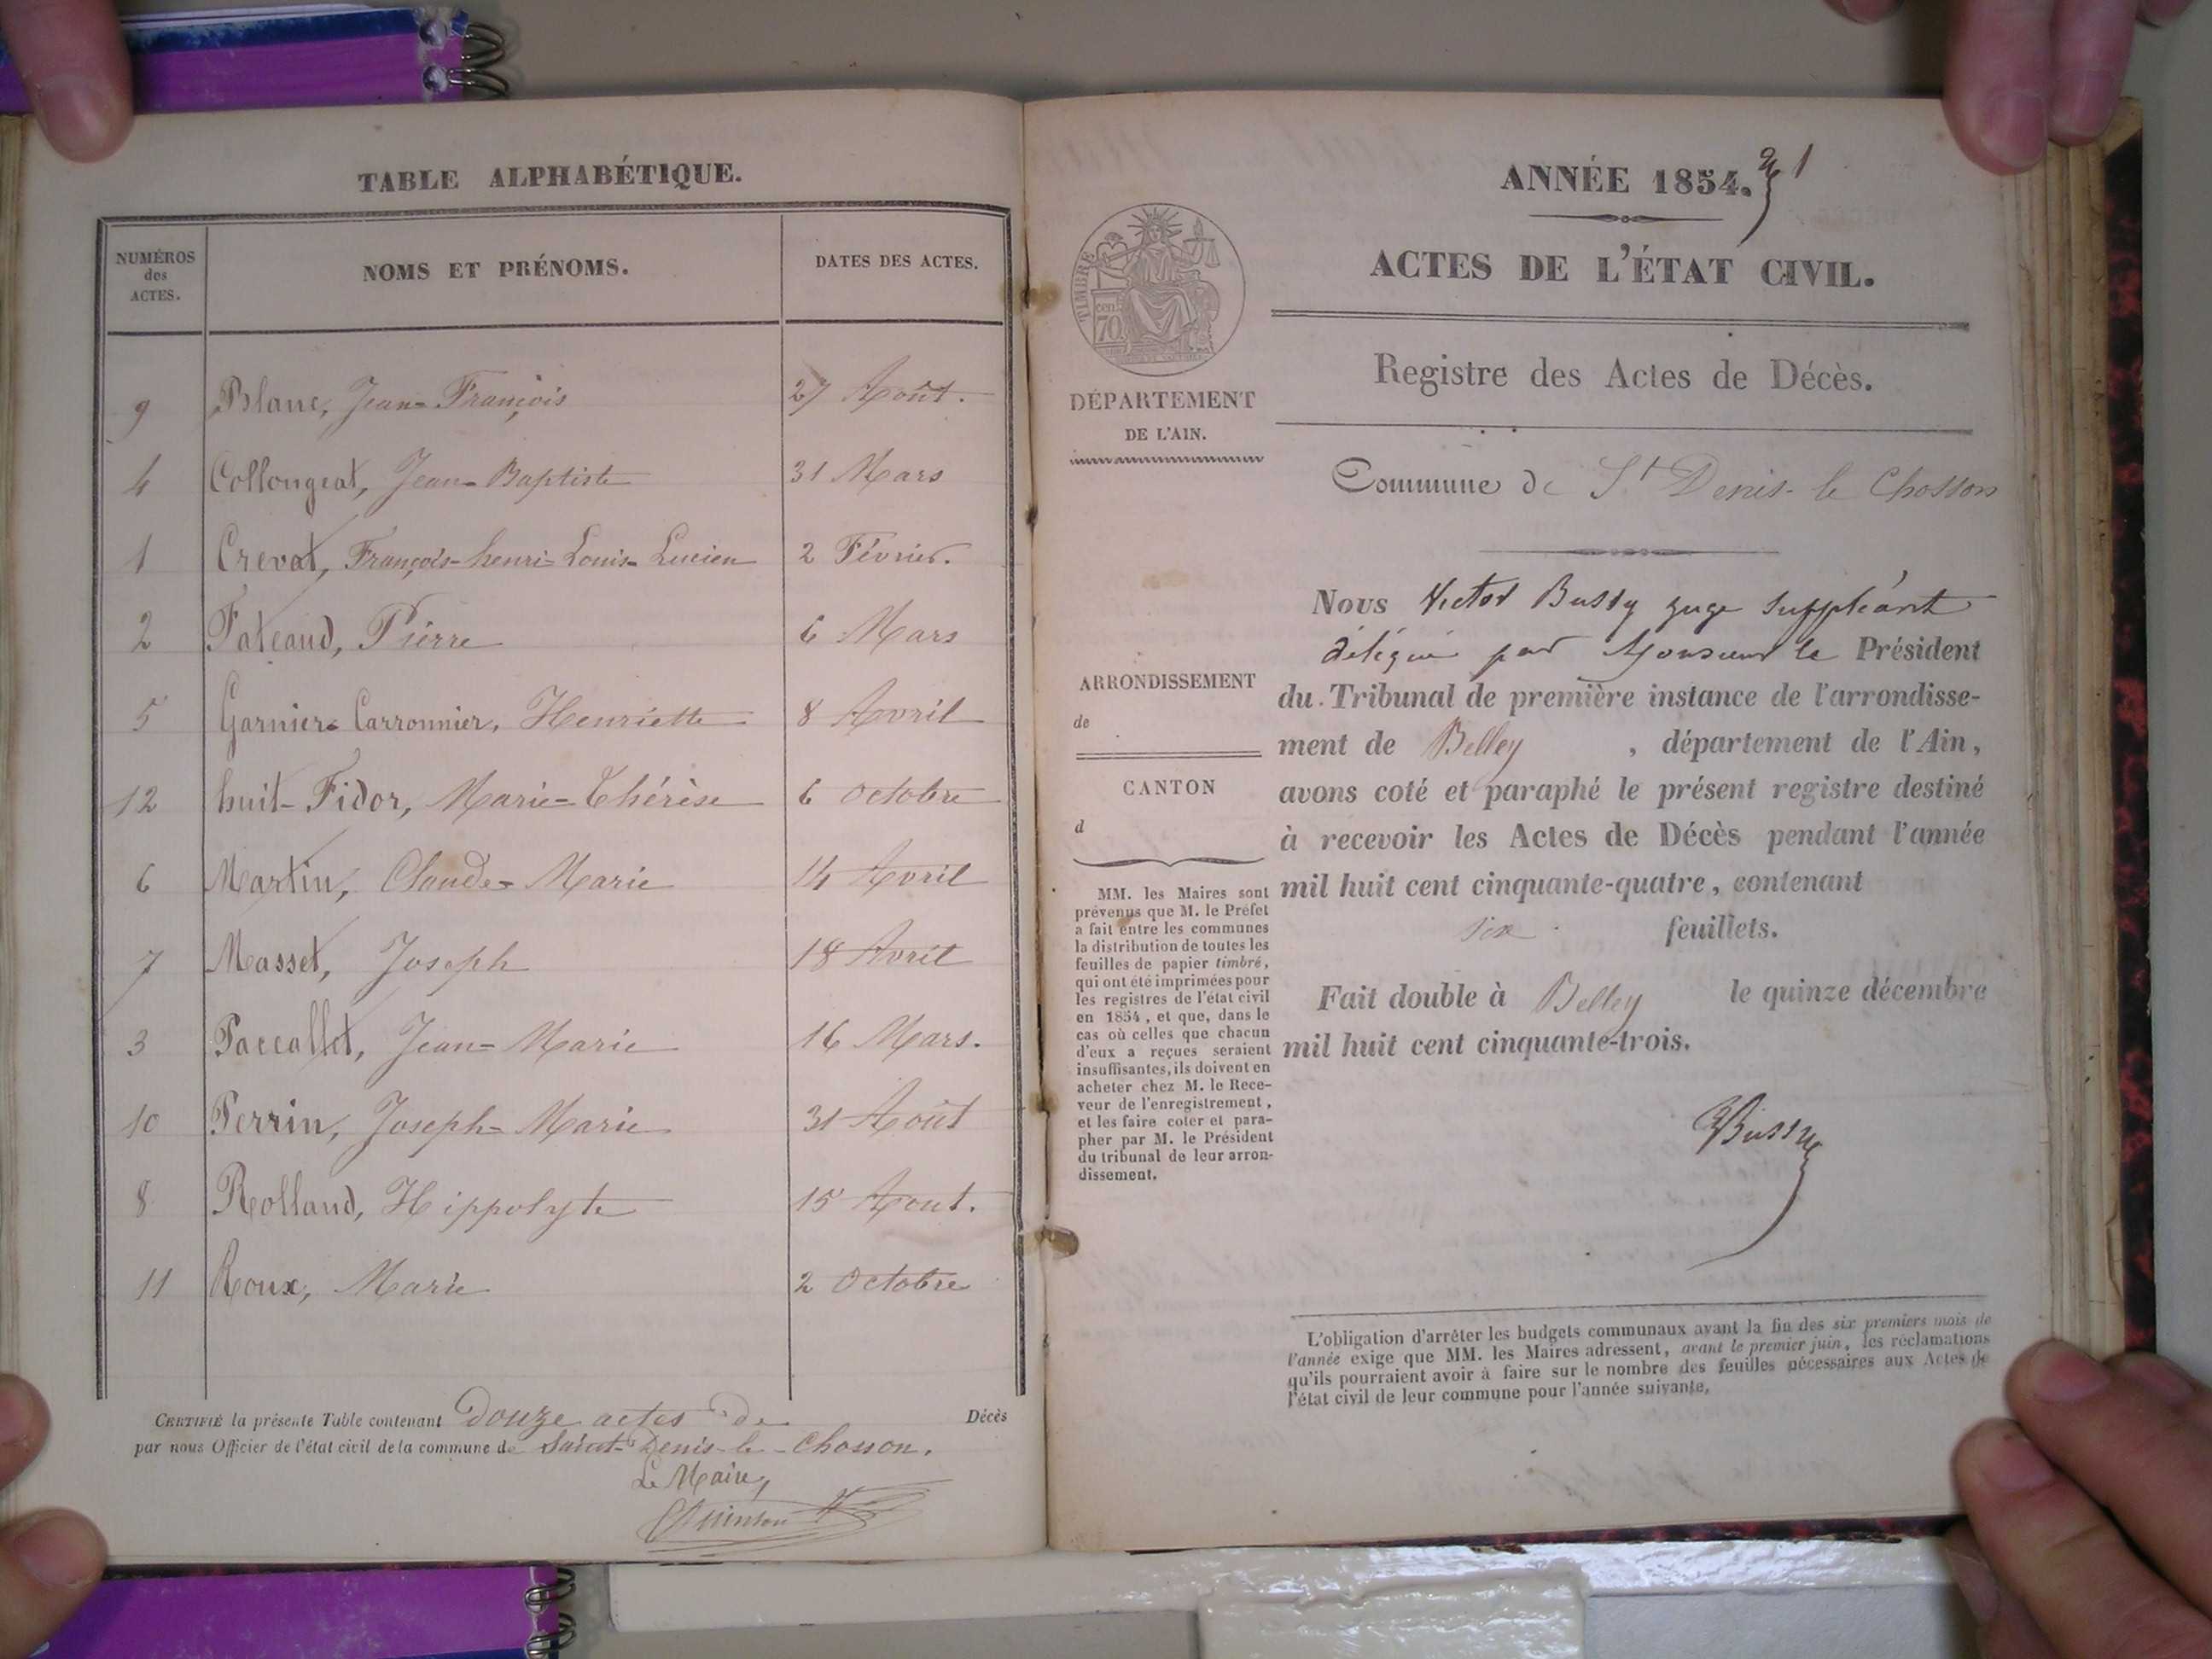 TABLE ALPHABÉTIQUE.
NUMÉROS des ACTES. NOMS ET PRÉNOMS. DATES DES ACTES.
9 Blanc, Jean-François 27 Août.
4 Collongeat, Jean-Baptiste 31 Mars
1 Crevat, François-henri-Louis-Lucien 2 Février.
2 Fateaud, Pierre 6 Mars
5 Garnier-Carronnier, Henriette 8 Avril
12 huit-Fidor, Marie-Thérèse 6 Octobre
6 Martin, Claude-Marie 14 Avril
7 Masset, Joseph 18 Avril
3 Paccallet, Jean-Marie 16 Mars.
10 Perrin, Joseph-Marie 31 Août
8 Rolland, Hippolyte 15 Aout.
11 Roux, Marie 2 Octobre
CERTIFIÉ la présente Table contenant Douze actes de Décès
par nous Officier de l'état civil de la commune de Saint-Denis-le-Chosson.
Le Maire,
ANNÉE 1854. 1
ACTES DE L'ÉTAT CIVIL.
TIMBRE
cen.
70
DÉPARTEMENT
DE L'AIN.
Registre des Actes de Décès.
Commune de St Denis-le Chosson
ARRONDISSEMENT
de
CANTON
d
MM. les Maires sont
prévenus que M. le Préfet
a fait entre les communes
la distribution de toutes les
feuilles de papier timbré,
qui ont été imprimées pour
les registres de l'état civil
en 1854, et que, dans le
cas où celles que chacun
d'eux a reçues seraient
insuffisantes, ils doivent en
acheter chez M. le Rece-
veur de l'enregistrement,
et les faire coter et para-
pher par M. le Président
du tribunal de leur arron-
dissement.
Nous Victor Bussy juge Suppléant
délégué par Monsieur le Président
du Tribunal de première instance de l'arrondisse-
ment de Belley, département de l'Ain,
avons coté et paraphé le présent registre destiné
à recevoir les Actes de Décès pendant l'année
mil huit cent cinquante-quatre, contenant
six feuillets.
Fait double à Belley le quinze décembre
mil huit cent cinquante-trois.
VBussy
L'obligation d'arrêter les budgets communaux avant la fin des six premiers mois de
l'année exige que MM. les Maires adressent, avant le premier juin, les réclamations
qu'ils pourraient avoir à faire sur le nombre des feuilles nécessaires aux Actes de
l'état civil de leur commune pour l'année suivante.